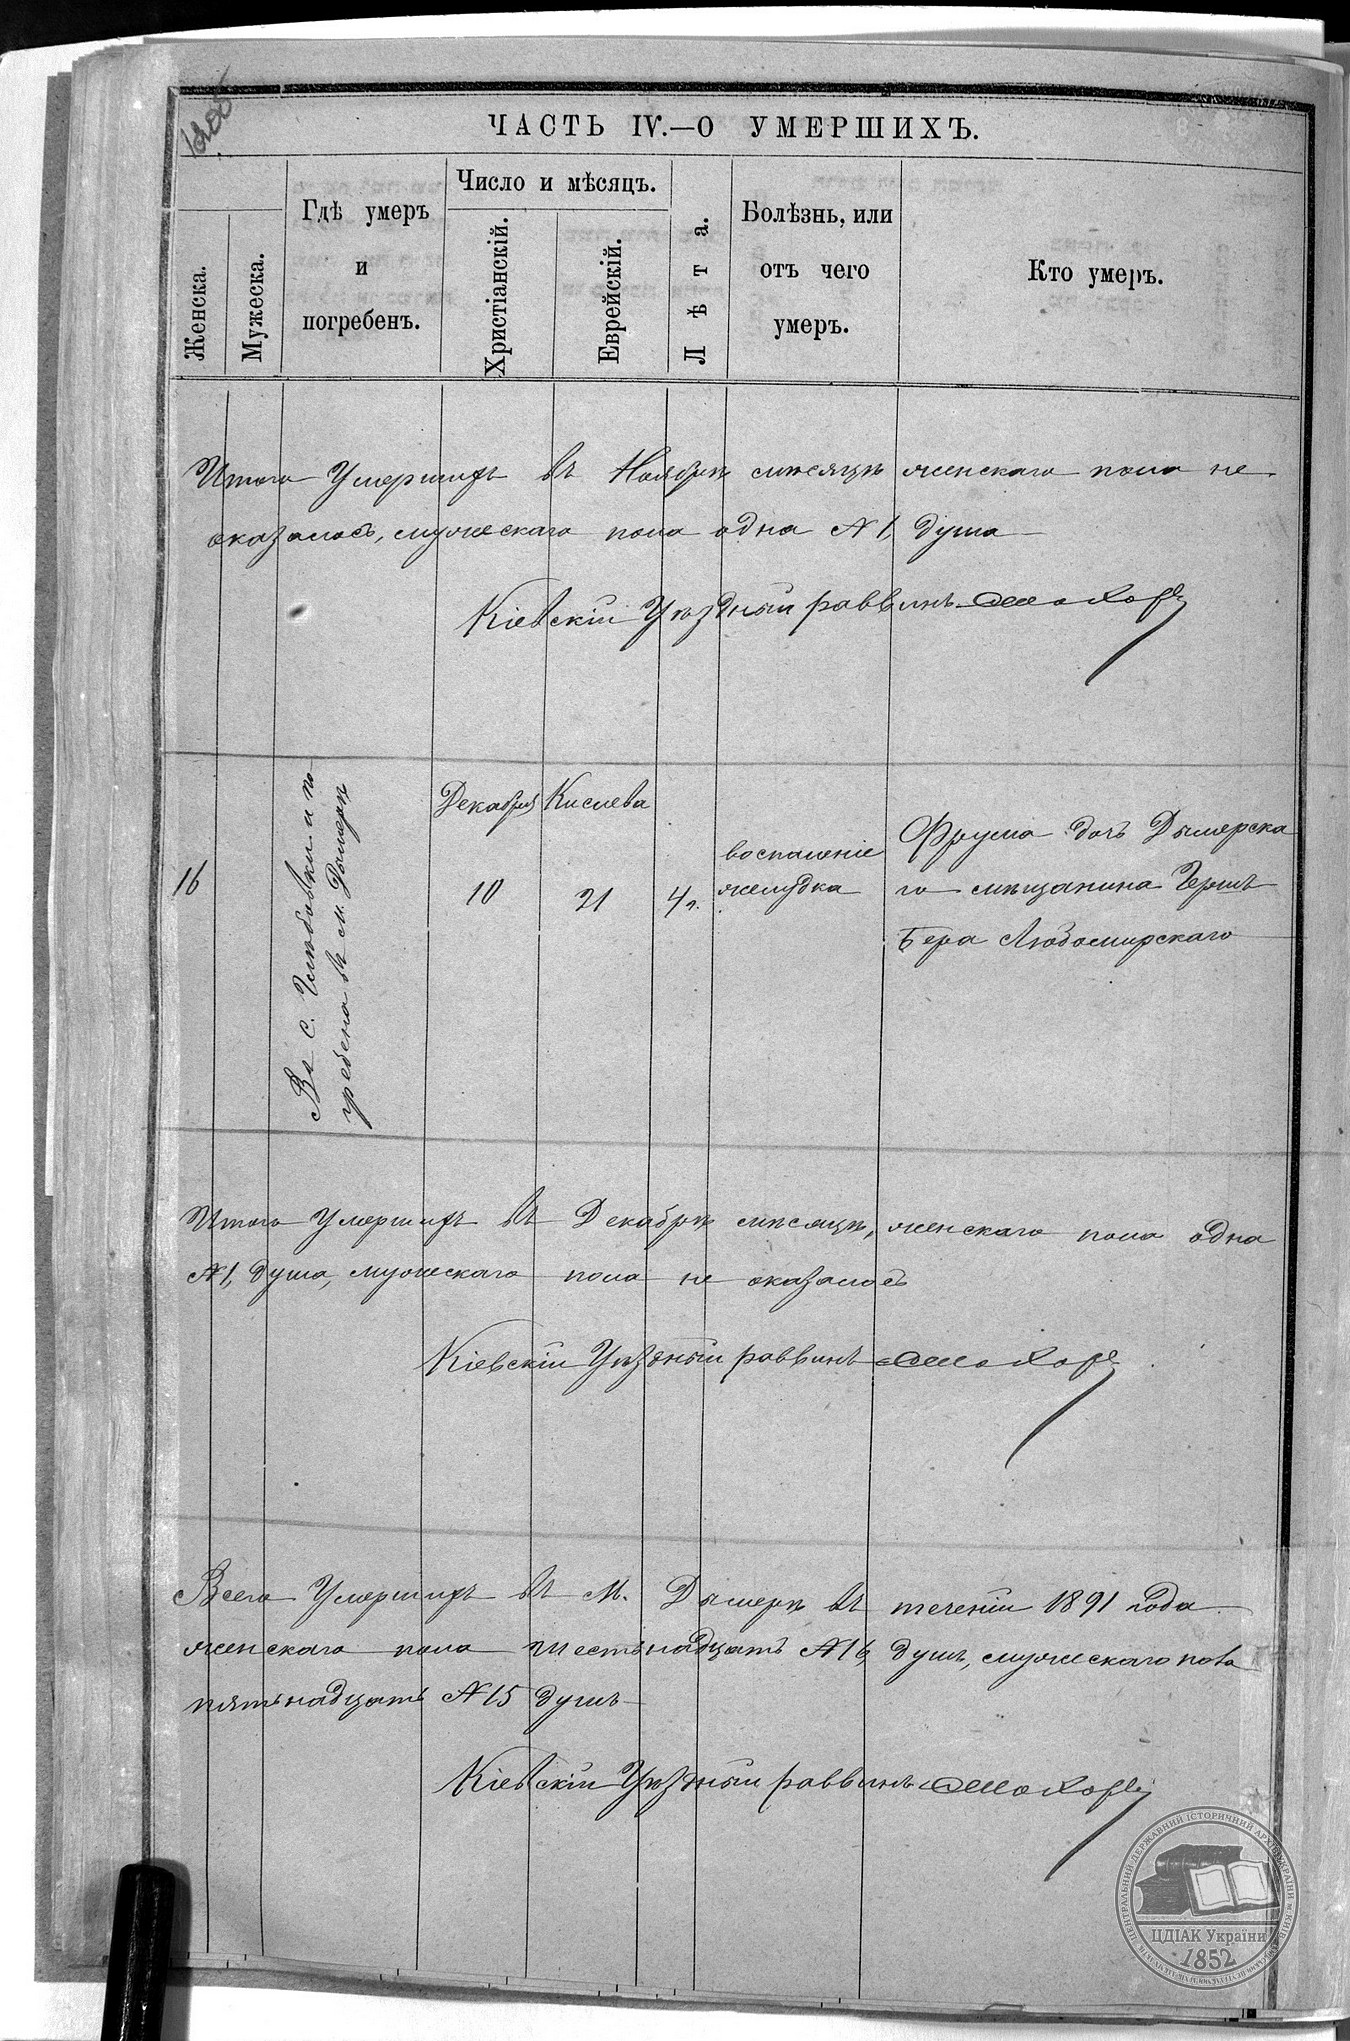 ЧАСТЬ IV.—О УМЕРШИХЪ.
Женска.
Мужеска.
Гдѣ умеръ
и
погребенъ.
Число и мѣсяцъ.
Христіанскій.
Еврейскій.
Лѣта.
Болѣзнь, или
отъ чего
умеръ.
Кто умеръ.
Итого Умершихъ въ Ноябрѣ мѣсяцѣ женскаго пола не
оказалось, мужескаго пола одна №1, душа
Кіевскій Уѣздный раввинъ
16
Въ с. и по
гребена въ м. Дымерѣ
Декабря
10
Кислева
21
4 г.
воспаленіе
желудка
Фрума дочь Дымерска
го мѣщанина Герша
Бера Любомирскаго
Итого Умершихъ въ Декабрѣ мѣсяцѣ, женскаго пола одна
№1, душа, мужескаго пола не оказалось
Кіевскій Уѣздный раввинъ
Всего Умершихъ въ М. Дымерѣ въ теченіи 1891 года
женскаго пола шестьнадцать №16, душъ, мужескаго пола
пятьнадцать №15 душъ
Кіевскій Уѣздный раввинъ
ЦЕНТРАЛЬНИЙ ДЕРЖАВНИЙ ІСТОРИЧНИЙ АРХІВ УКРАЇНИ
ЦДІАК України
1852